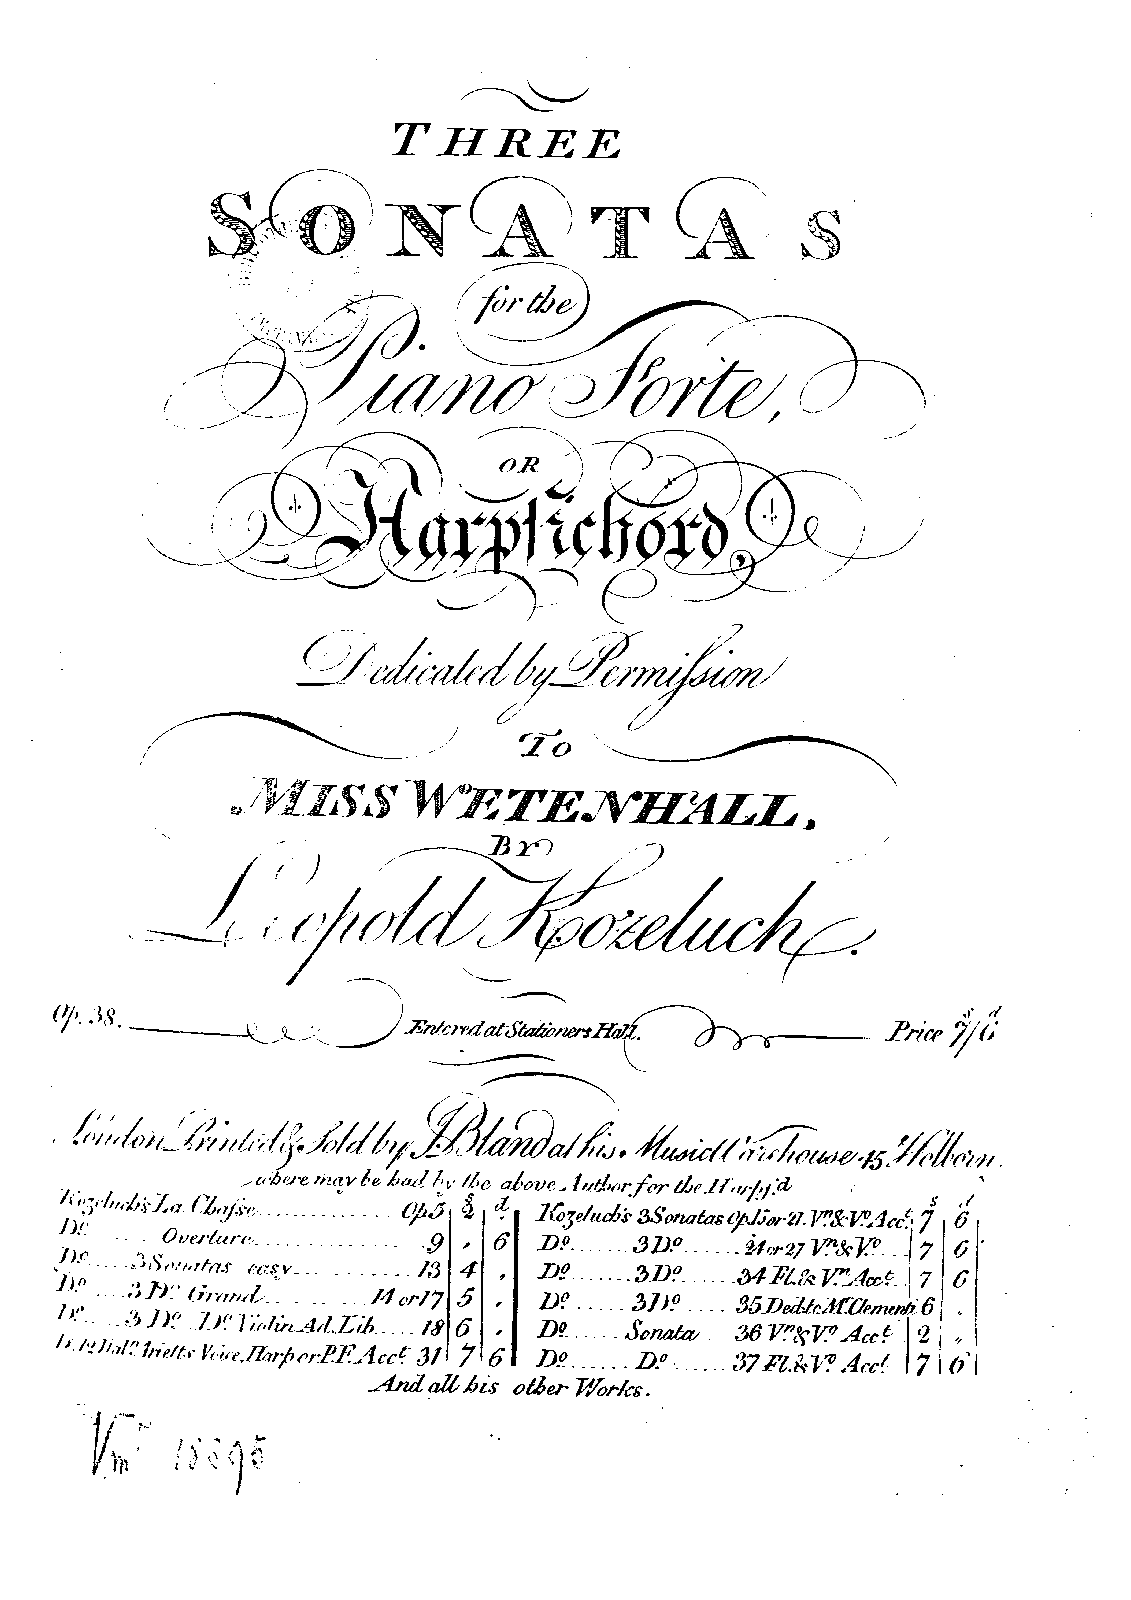 THREE
SONATAS
for the
Piano Forte,
OR
Harpsichord,
Dedicated by Permission
To
MISS WETENHALL.
BY
Leopold Kozeluch.
Op. 38. Entered at Stationers Hall. Price 7/6
London Printed & Sold by J. Bland at his Music Warehouse 45 Holborn.
where may be had by the above Author for the Harpd.
Kozeluch's La Chasse Op 5 2
Do. Overture 9 , 6
Do. 3 Sonatas easy 13 4 ,
Do. 3 Do. Grand 14 or 17 5 ,
Do. 3 Do. Do. Violin Ad. Lib 18 6 ,
Voice, Harp or P.F. Acct. 31 7 6
s d
Kozeluch's 3 Sonatas Op 15 or 21. Vn. & Vo. Acct. 7 6
Do. 3 Do. 24 or 27 Vn. & Vo. 7 6
Do. 3 Do. 34 Fl. & Vn. Acct. 7 6
Do. 3 Do. 35 Ded. to Mr. Clementi 6 ,
Do. Sonata 36 Vn. & Vo. Acct. 2 ,,
Do. Do. 37 Fl. & Vo. Acct. 7 6
And all his other Works.
Vm